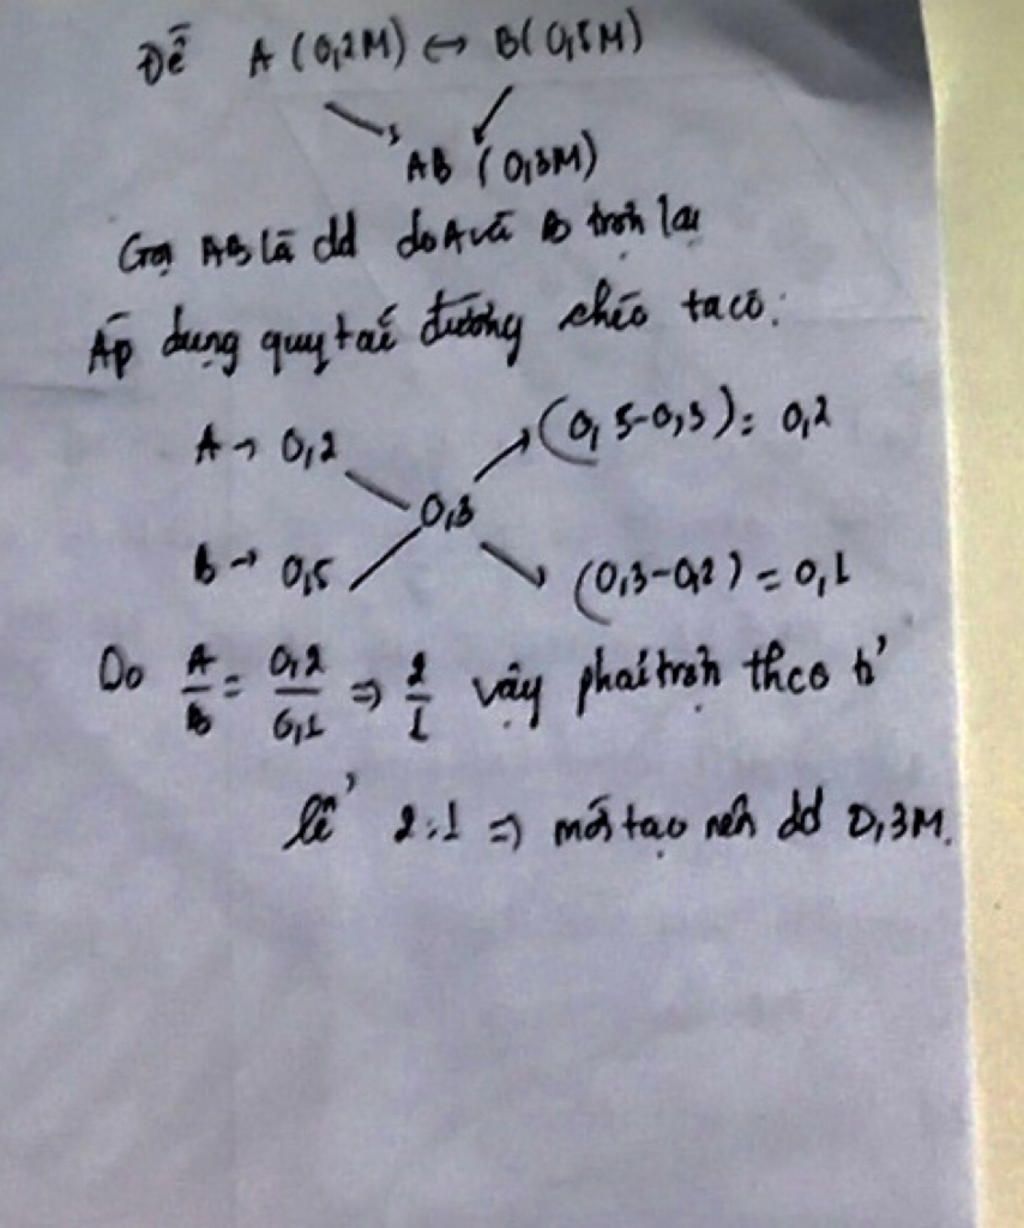 Đề A (0,2M) ↔ B (0,5M)
AB (0,3M)
Gọi AB là dd do A và B trộn lại
Áp dụng quy tắc đường chéo ta có:
A → 0,2 (0,5-0,3) = 0,2
0,3
B → 0,5 (0,3-0,2) = 0,1
Do A/B = 0,2/0,1 => 2/1 vậy phải trộn theo tỉ
lệ 2:1 => mới tạo nên dd 0,3M.